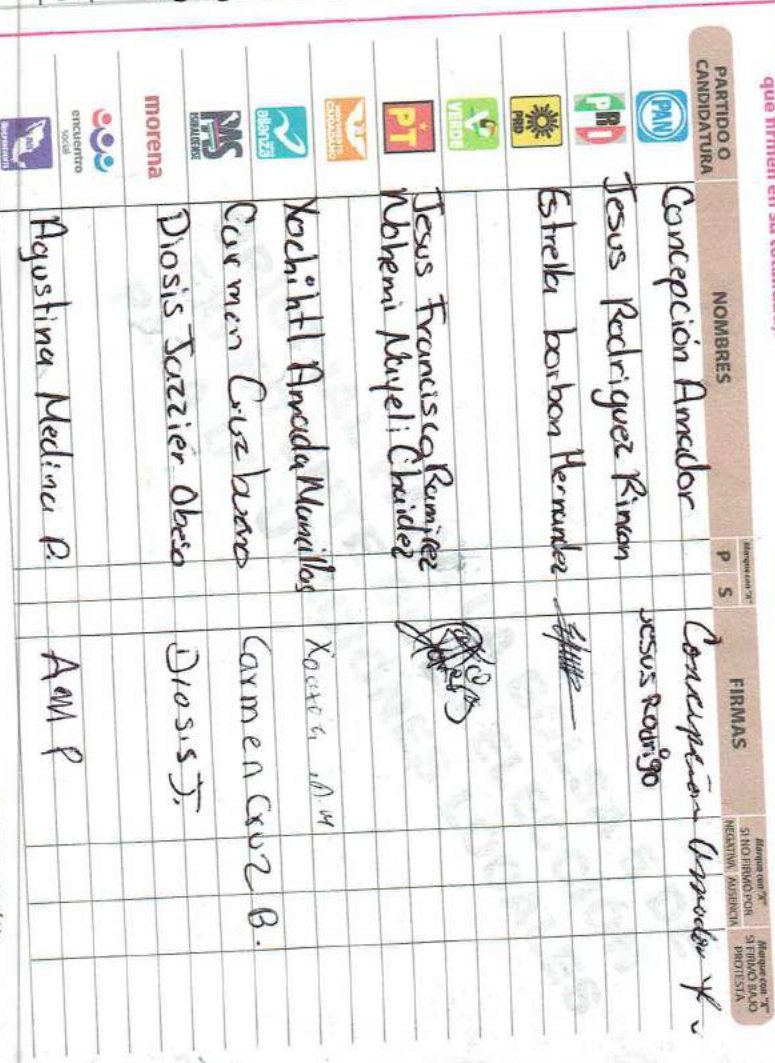 que firmen en su totalidad,
PARTIDO O CANDIDATURA
NOMBRES
Marque con "X"
P S
FIRMAS
Marque con "X" SI NO FIRMÓ POR
NEGATIVA AUSENCIA
Marque con "X" SI FIRMÓ BAJO PROTESTA
PAN Concepción Amador
PRI Jesus Rodriguez Rincon Jesus Rodrigo
PRD Estrella borbon Hernandez
VERDE
PT Jesus Francisco Ramirez
Nohemi Nayeli Chaidez
MOVIMIENTO CIUDADANO
alianza Xochihtl Amada Mancillas
PAS SINALOENSE Carmen Cruz bueno Carmen Cruz B.
morena Diosis Jazzier Obeso Diosis J.
encuentro social
INDEPENDIENTE Agustina Medina P. AMP